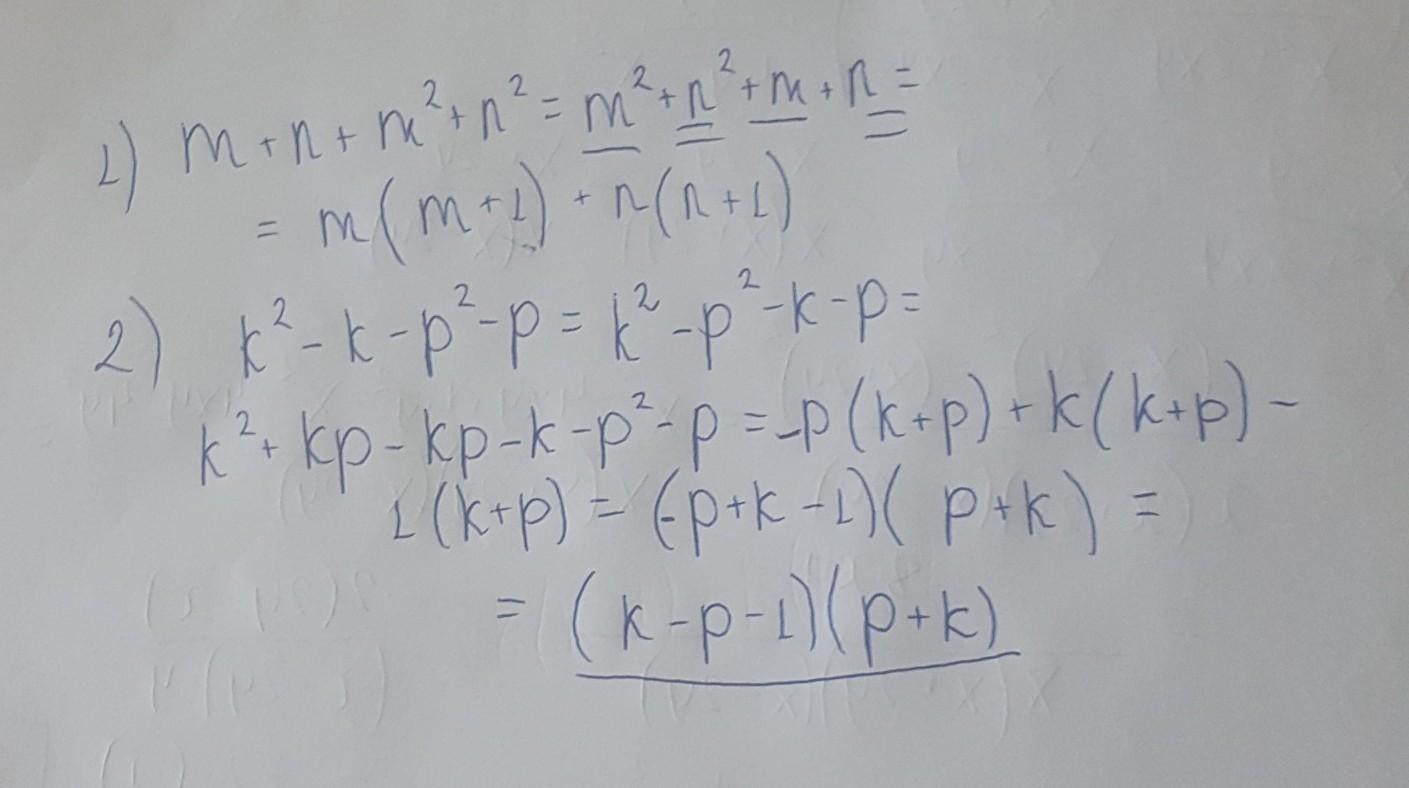 1) m + n + m² + n² = m² + n² + m + n =
= m(m+1) + n(n+1)
2) k² - k - p² - p = k² - p² - k - p =
k² + kp - kp - k - p² - p = -p(k+p) + k(k+p) -
1(k+p) = (-p+k-1)(p+k) =
= (k-p-1)(p+k)